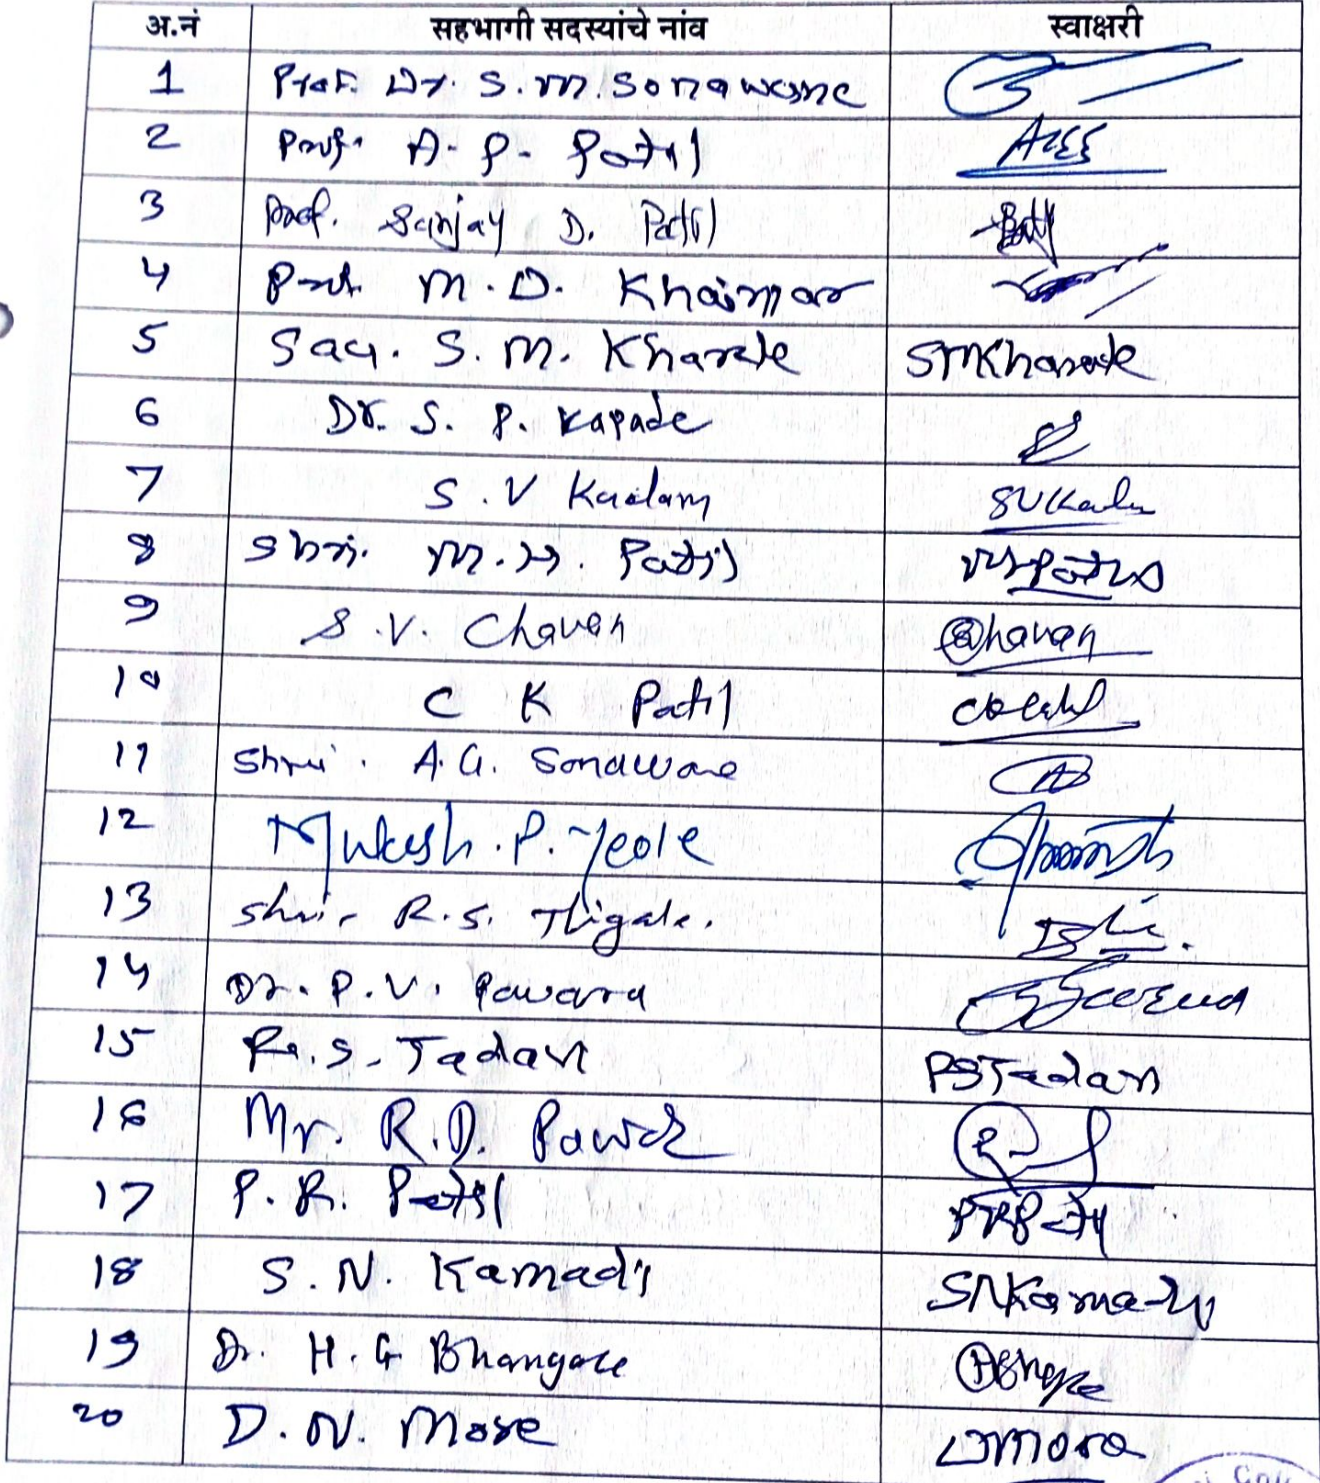 अ.नं सहभागी सदस्यांचे नांव स्वाक्षरी
1 Prof. Dr. S.M. Sonawane
2 Prof. A. P. Patil
3 Prof. Sanjay D. Patil Patil
4 Prof. M.D. Khairnar
5 Sau. S.M. Kharate SMKharate
6 Dr. S. P. Kapade
7 S.V Kadam SVKadam
8 Shri. M.H. Patil
9 S.V. Chavan Chavan
10 C K Patil
11 Shri. A.G. Sonawane
12 Mukesh.P.Yeole
13 Shri. R.S. Thigale.
14 Dr. P.V. Pawara
15 R.S. Tadavi
16 Mr. R.D. Pawar
17 P.R. Patil PRPatil
18 S.N. Kamadi SNKamadi
19 Dr. H.G Bhangale
20 D.N. More